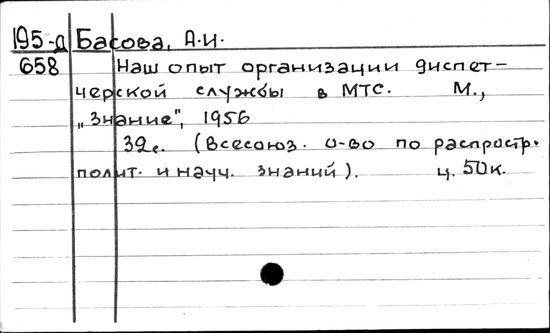 195-д Басова, А.И.
658 Наш опыт организации диспет-
черской службы в МТС. М.,
„Знание", 1956
32с. (Всесоюз. о-во по распростр.
полит. и науч. знаний). ц. 50к.